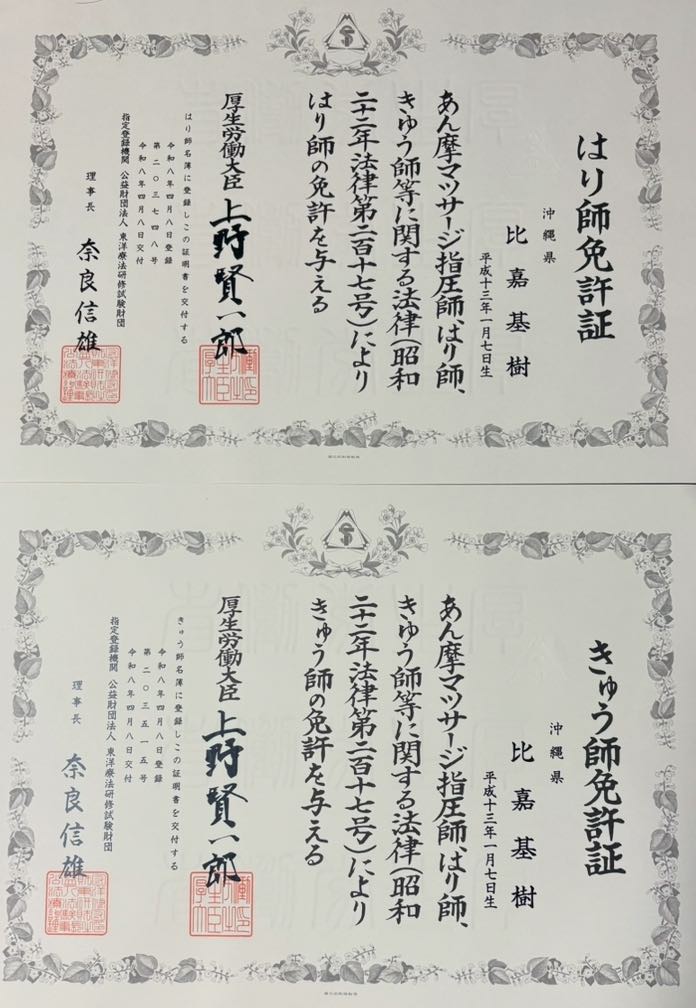 はり師免許証
沖縄県
比嘉基樹
平成十三年一月七日生
あん摩マツサージ指圧師、はり師、
きゆう師等に関する法律（昭和
二十二年法律第二百十七号）により
はり師の免許を与える
厚生労働大臣 上野賢一郎
はり師名簿に登録しこの証明書を交付する
令和八年四月八日登録
第二〇三七四八号
令和八年四月八日交付
指定登録機関 公益財団法人 東洋療法研修試験財団
理事長 奈良信雄
きゅう師免許証
沖縄県
比嘉基樹
平成十三年一月七日生
あん摩マツサージ指圧師、はり師、
きゆう師等に関する法律（昭和
二十二年法律第二百十七号）により
きゅう師の免許を与える
厚生労働大臣 上野賢一郎
きゅう師名簿に登録しこの証明書を交付する
令和八年四月八日登録
第二〇三五一五号
令和八年四月八日交付
指定登録機関 公益財団法人 東洋療法研修試験財団
理事長 奈良信雄